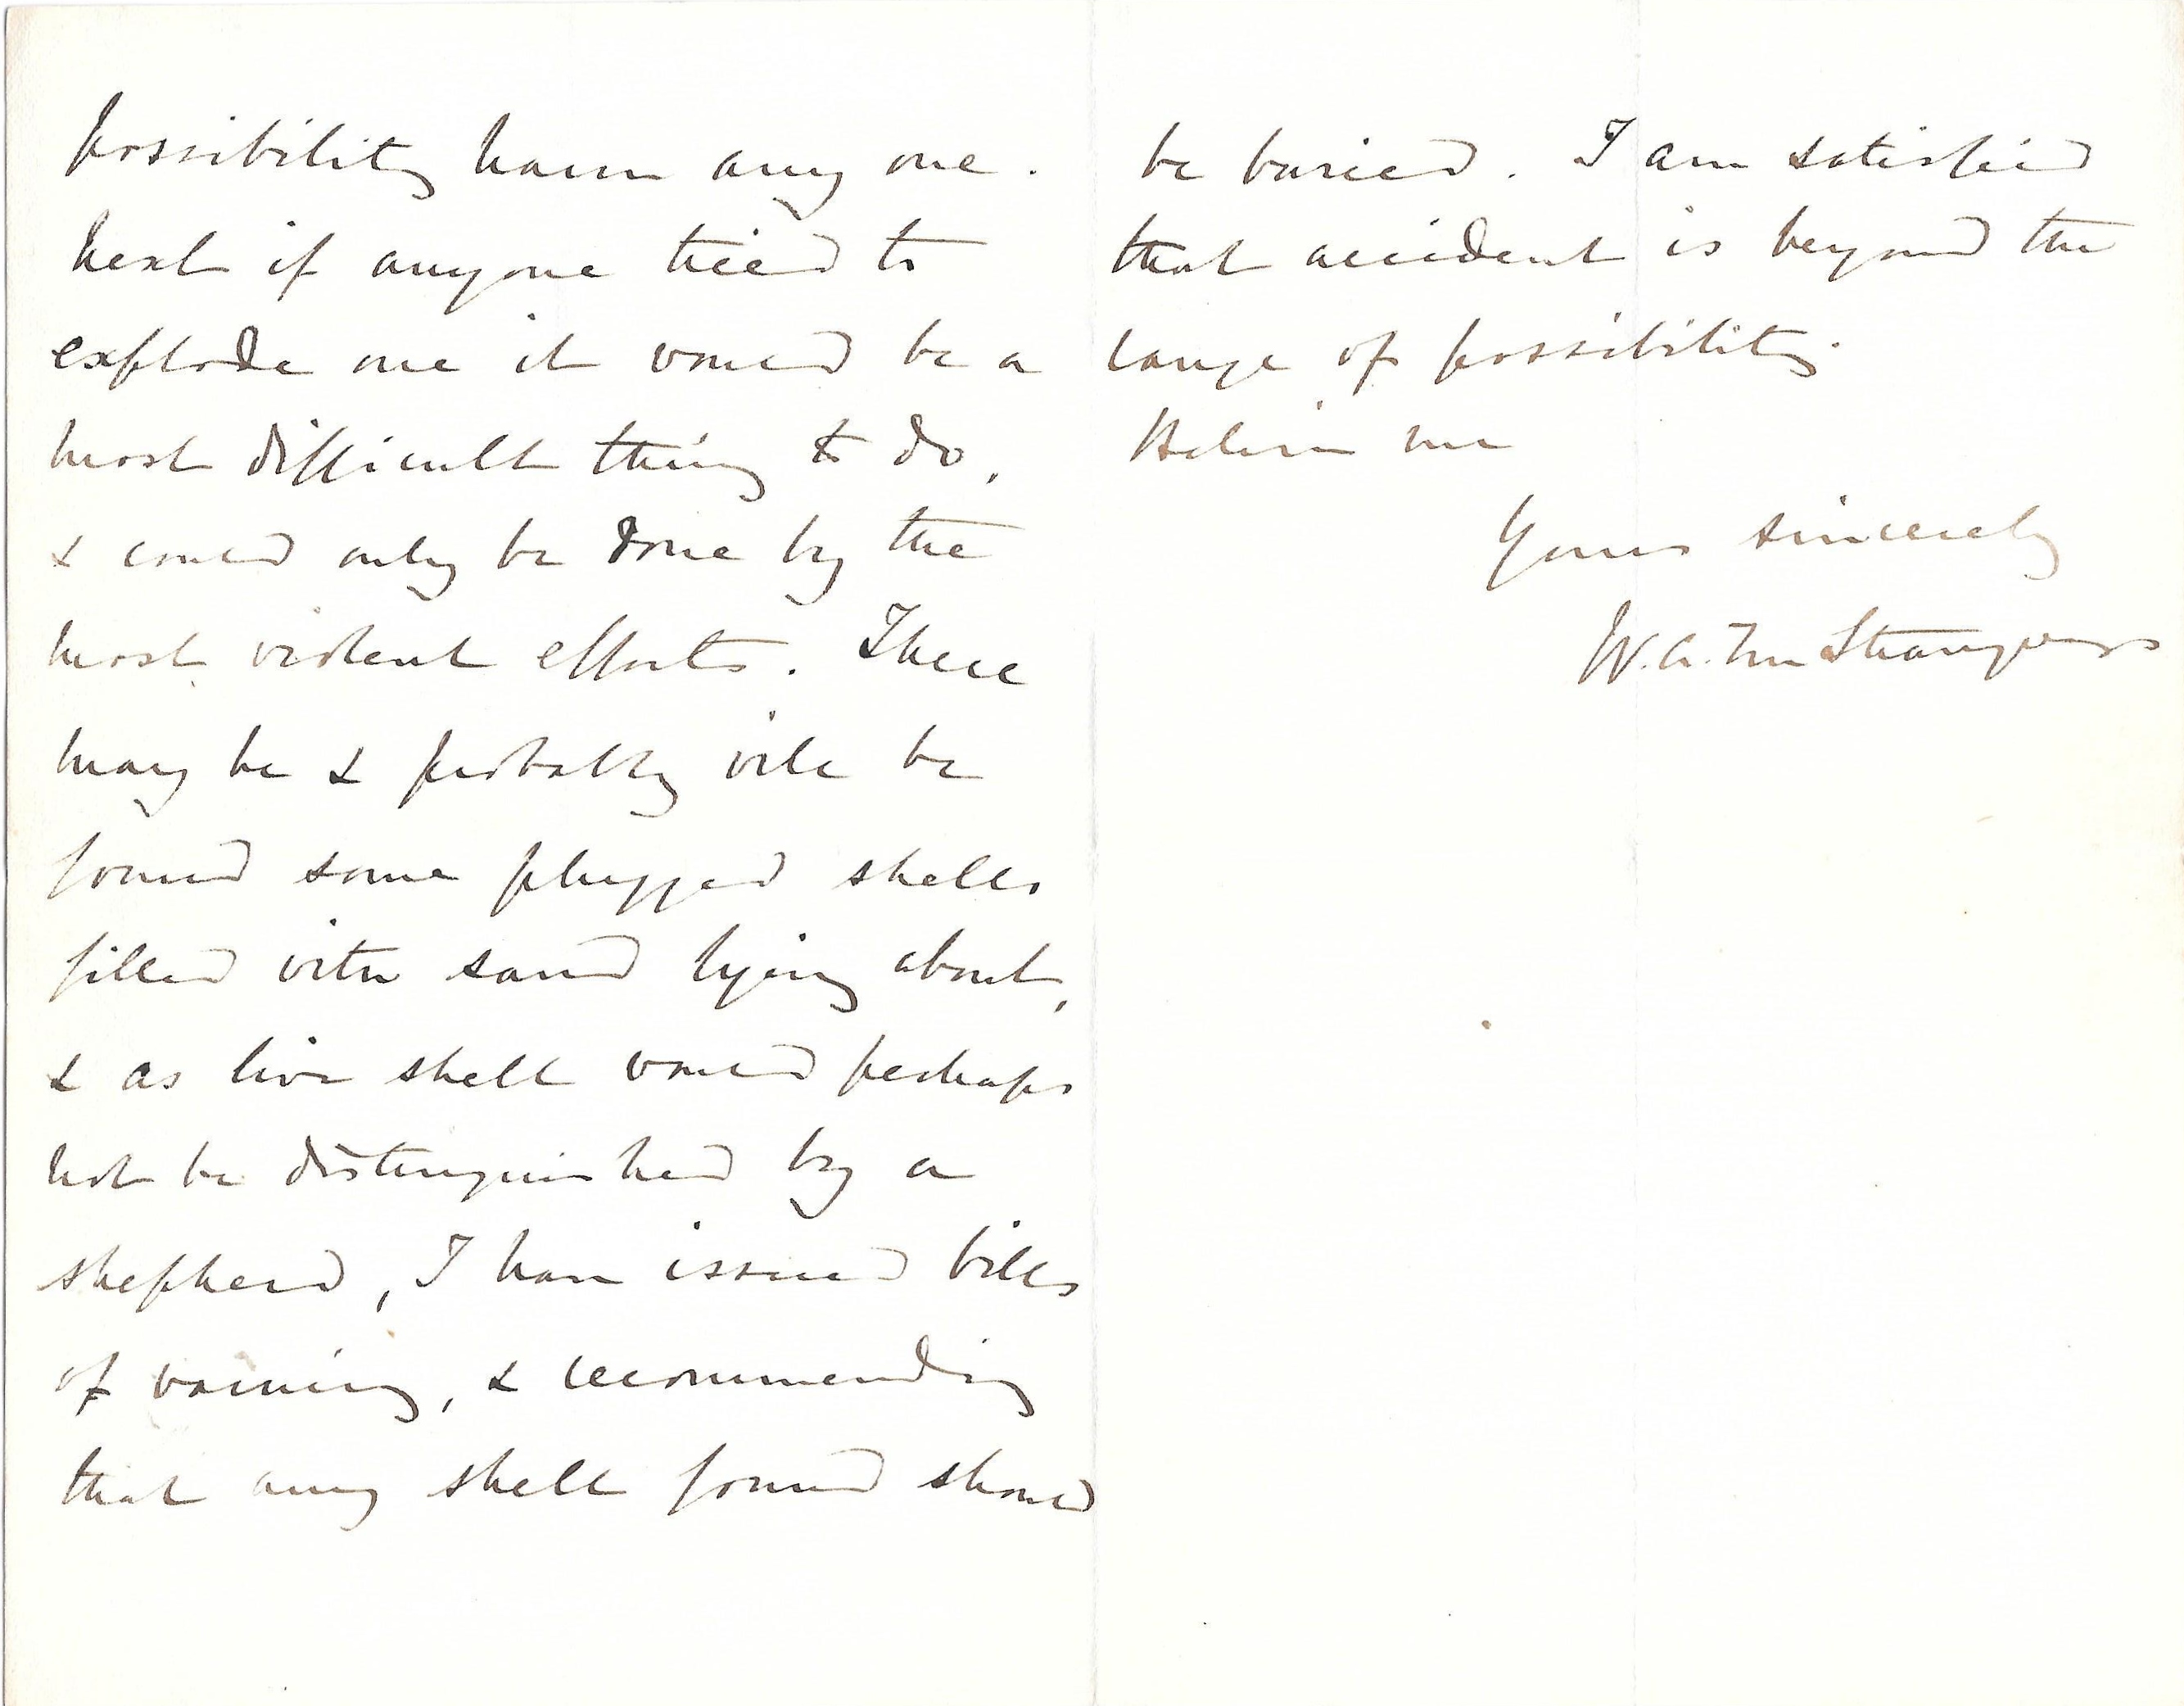 possibility harm any one.
Next if anyone tried to
explode one it would be a
most difficult thing to do,
& could only be done by the
most violent efforts. There
may be & probably will be
found some plugged shells
filled with sand lying about,
& as live shell would perhaps
not be distinguished by a
shepherd, I have issued bills
of warning, & recommending
that any shell found should
be buried. I am satisfied
that accident is beyond the
range of possibility.
Believe me
Yours sincerely
W.A. Fox Strangways